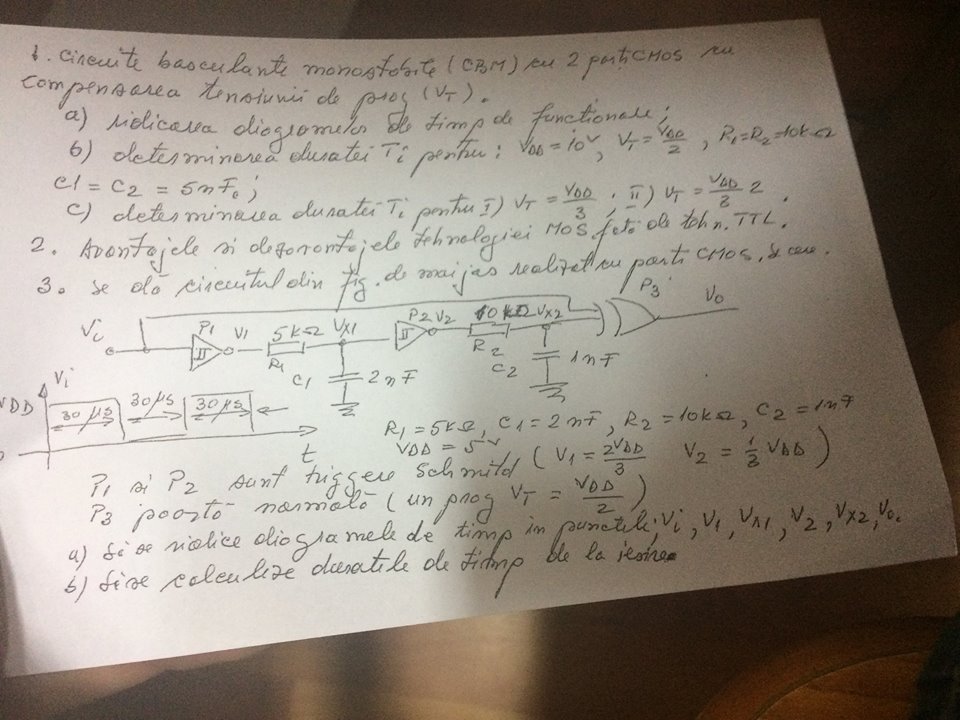 1. Circuite basculante monostabile (CBM) cu 2 porti CMOS cu
compensarea tensiunii de prag (VT).
a) ridicarea diagramelor de timp de functionare;
b) determinarea duratei Ti pentru: VDD = 10V, VT = VDD/2, R1=R2=10kΩ
C1 = C2 = 5nF.;
c) determinarea duratei Ti pentru I) VT = VDD/3; II) VT = VDD/3 2.
2. Avantajele si dezavantajele tehnologiei MOS fata de tehn. TTL.
3. Se da circuitul din fig. de mai jos realizat cu porti CMOS, si cu
Vi P1 V1 5kΩ VX1 P2 V2 10kΩ VX2 P3 V0
R1 C1 2nF R2 C2 1nF
VDD Vi 30μs 30μs 30μs
0 t
R1 = 5kΩ, C1 = 2nF, R2 = 10kΩ, C2 = 1nF
VDD = 5V
P1 si P2 sunt triggere Schmitd (V1 = 2VDD/3 V2 = 1/3 VDD)
P3 poarta normala (un prag VT = VDD/2)
a) Sa se ridice diagramele de timp in punctele: Vi, V1, VX1, V2, VX2, V0.
b) Sa se calculeze duratele de timp de la iesire